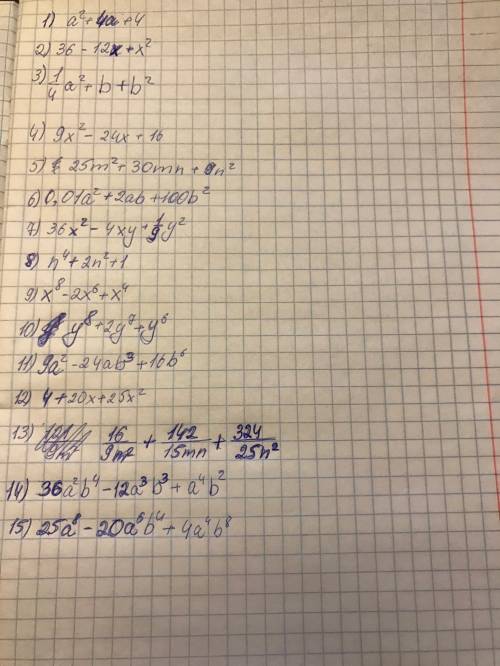 1) a² + 4a + 4
2) 36 - 12x + x²
3) 1/4 a² + b + b²
4) 9x² - 24x + 16
5) 25m² + 30mn + 9n²
6) 0,01a² + 2ab + 100b²
7) 36x² - 4xy + 1/9 y²
8) n⁴ + 2n² + 1
9) x⁸ - 2x⁶ + x⁴
10) y⁸ + 2y⁷ + y⁶
11) 9a² - 24ab³ + 16b⁶
12) 4 + 20x + 25x²
13) 16/9m² + 142/15mn + 324/25n²
14) 36a²b⁴ - 12a³b³ + a⁴b²
15) 25a⁸ - 20a⁶b⁴ + 4a⁴b⁸